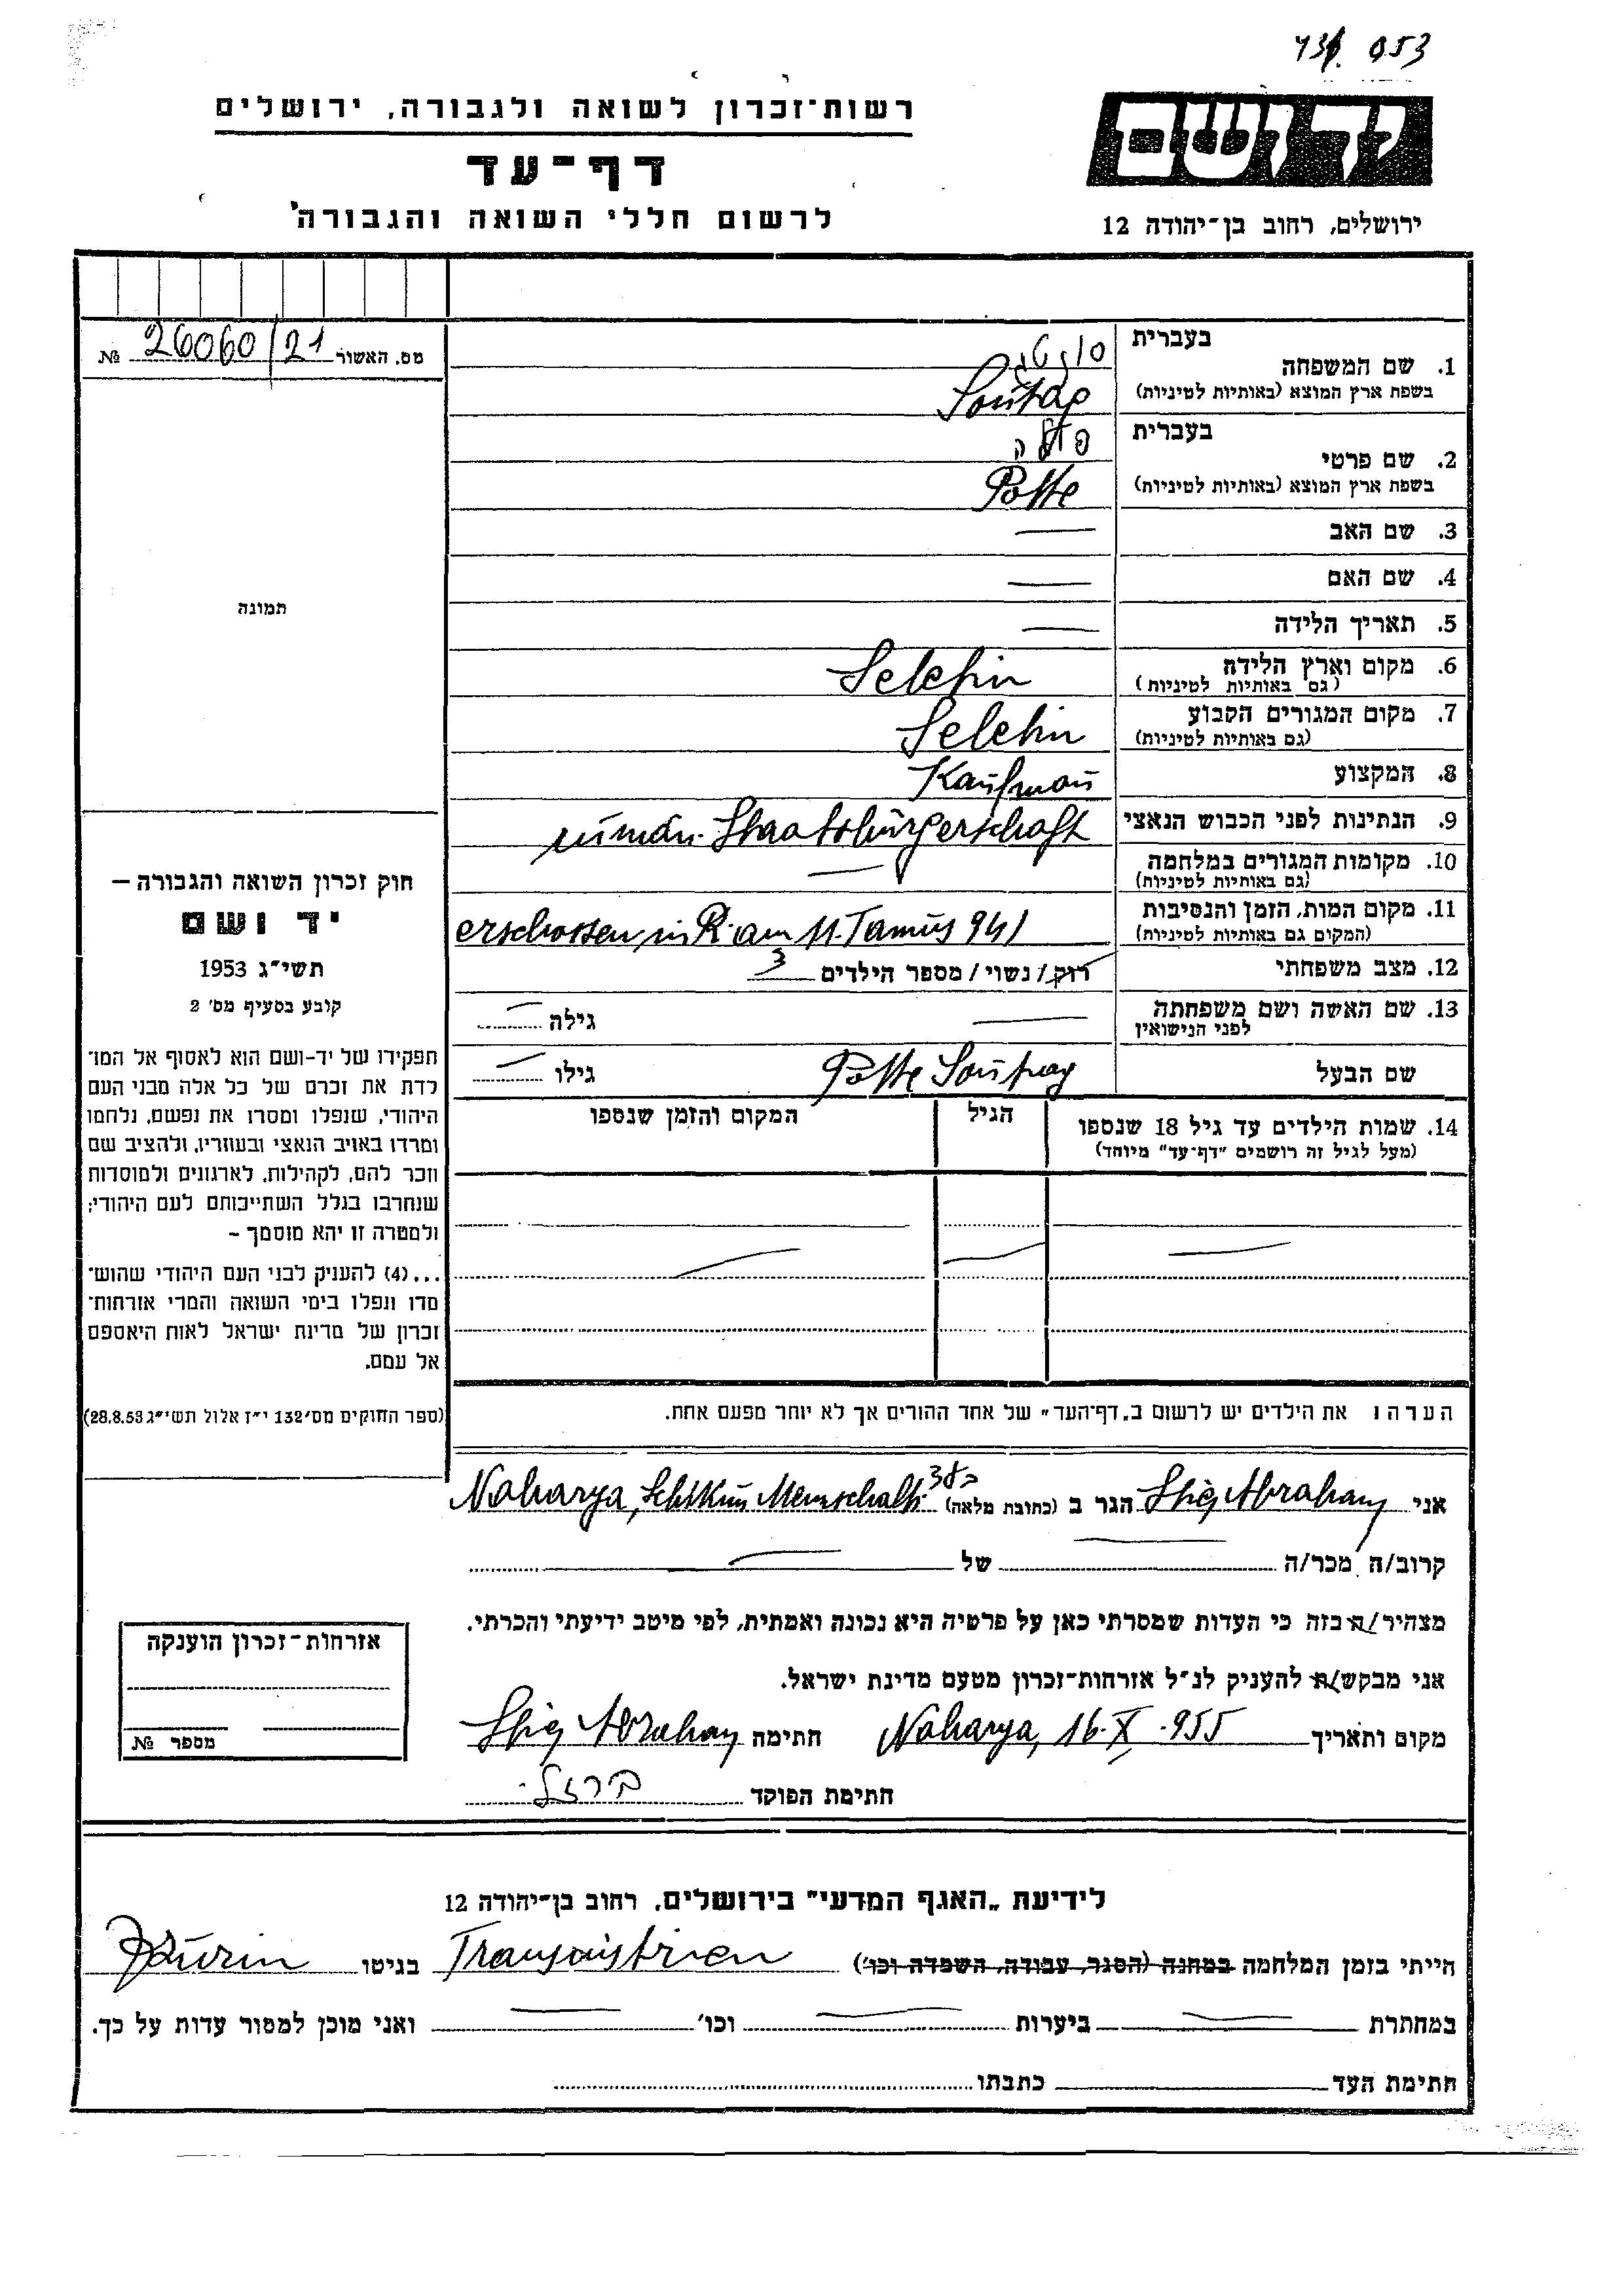 רשות־זכרון לשואה ולגבורה, ירושלים
דף־עד
לרשום חללי השואה והגבורה
יד ושם
ירושלים, רחוב בן־יהודה 12
מס. האשור 26060/21 №
תמונה
בעברית
1. שם המשפחה
בשפת ארץ המוצא (באותיות לטיניות) Sontag
בעברית
2. שם פרטי
בשפת ארץ המוצא (באותיות לטיניות)
3. שם האב —
4. שם האם —
5. תאריך הלידה —
6. מקום וארץ הלידה Seletin
(גם באותיות לטיניות)
7. מקום המגורים הקבוע Seletin
(גם באותיות לטיניות)
8. המקצוע Kaufman
9. הנתינות לפני הכבוש הנאצי rumän. Staatsbürgerschaft
10. מקומות המגורים במלחמה —
(גם באותיות לטיניות)
11. מקום המות, הזמן והנסיבות erschossen in R. am 11. Tamus 941
(המקום גם באותיות לטיניות)
12. מצב משפחתי רוק / נשוי / מספר הילדים 3
13. שם האשה ושם משפחתה — גילה —
לפני הנישואין
שם הבעל גילו —
14. שמות הילדים עד גיל 18 שנספו הגיל המקום והזמן שנספו
(מעל לגיל זה רושמים "דף־עד" מיוחד)
— — —
הערה: את הילדים יש לרשום ב„דף־העד" של אחד ההורים אך לא יותר מפעם אחת.
חוק זכרון השואה והגבורה —
יד ושם
תשי״ג 1953
קובע בסעיף מס׳ 2
תפקידו של יד-ושם הוא לאסוף אל המו־
לדת את זכרם של כל אלה מבני העם
היהודי, שנפלו ומסרו את נפשם, נלחמו
ומרדו באויב הנאצי ובעוזריו, ולהציב שם
וזכר להם, לקהילות, לארגונים ולמוסדות
שנחרבו בגלל השתייכותם לעם היהודי;
ולמטרה זו יהא מוסמך –
...(4) להעניק לבני העם היהודי שהוש־
מדו ונפלו בימי השואה והמרי אזרחות־
זכרון של מדינת ישראל לאות היאספם
אל עמם.
(ספר החוקים מס׳ 132 י״ז אלול תשי״ג 28.8.53)
אני Abraham הגר ב (כתובת מלאה) Naharya, Schikun Memschalti
קרוב/ה מכר/ה — של —
מצהיר/ה בזה כי העדות שמסרתי כאן על פרטיה היא נכונה ואמתית, לפי מיטב ידיעתי והכרתי.
אני מבקש/ת להעניק לנ״ל אזרחות־זכרון מטעם מדינת ישראל.
מקום ותאריך Naharya, 16.X.955 חתימה Abraham
חתימת הפוקד ברזל
אזרחות־זכרון הוענקה
מספר №
לידיעת „האגף המדעי" בירושלים, רחוב בן־יהודה 12
הייתי בזמן המלחמה במחנה (הסגר, עבודה, השמדה וכו׳) Transnistrien בגיטו Djurin
במחתרת — ביערות — וכו׳ — ואני מוכן למסור עדות על כך.
חתימת העד כתבתו